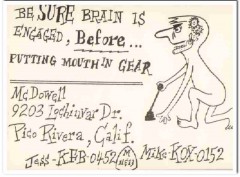 BE SURE BRAIN IS
ENGAGED, Before...
PUTTING MOUTH IN GEAR
McDowell
9203 Lochinvar Dr.
Pico Rivera, Calif.
Jess-KFB-0452 Mike KOX-0152